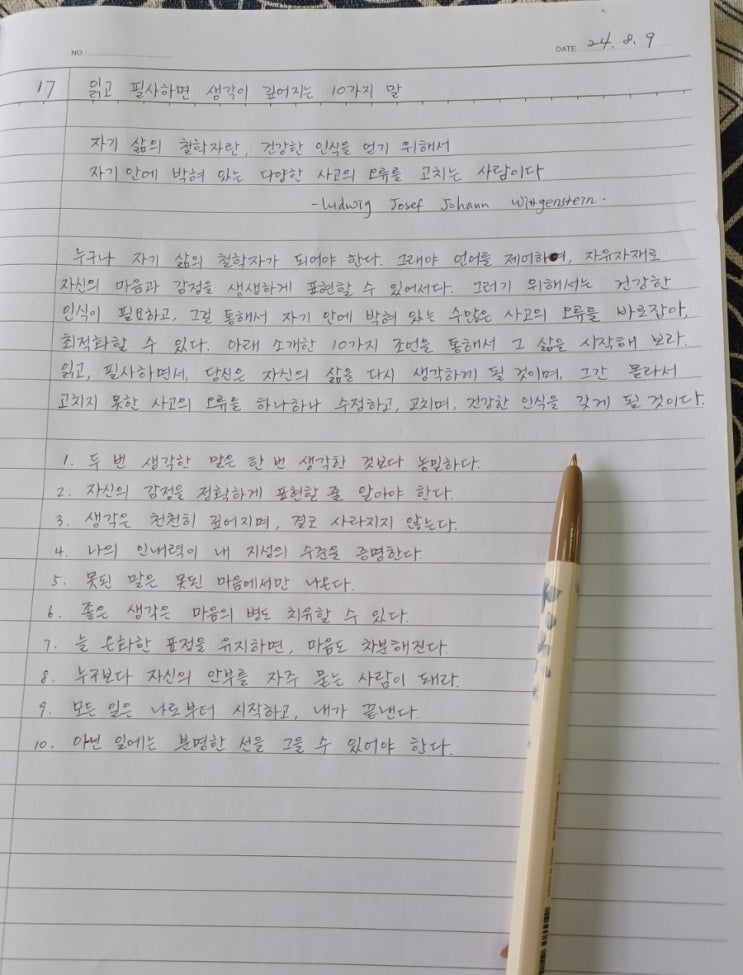 NO :
DATE : 24. 8. 9
17 읽고 필사하면 생각이 깊어지는 10가지 말
자기 삶의 철학자란, 건강한 인식을 얻기 위해서
자기 안에 박혀 있는 다양한 사고의 오류를 고치는 사람이다
- Ludwig Josef Johann Wittgenstein -
누구나 자기 삶의 철학자가 되어야 한다. 그래야 언어를 제어하여, 자유자재로
자신의 마음과 감정을 생생하게 표현할 수 있어서다. 그러기 위해서는 건강한
인식이 필요하고, 그걸 통해서 자기 안에 박혀 있는 수많은 사고의 오류를 바로잡아,
최적화할 수 있다. 아래 소개한 10가지 조언을 통해서 그 삶을 시작해 보라.
읽고, 필사하면서, 당신은 자신의 삶을 다시 생각하게 될 것이며, 그간 몰라서
고치지 못한 사고의 오류를 하나하나 수정하고, 고치며, 건강한 인식을 갖게 될 것이다.
1. 두 번 생각한 말은 한 번 생각한 것보다 농밀하다.
2. 자신의 감정을 정확하게 표현할 줄 알아야 한다.
3. 생각은 천천히 깊어지며, 결코 사라지지 않는다.
4. 나의 인내력이 내 지성의 수준을 증명한다.
5. 못된 말은 못된 마음에서만 나온다.
6. 좋은 생각은 마음의 병도 치유할 수 있다.
7. 늘 온화한 표정을 유지하면, 마음도 차분해진다.
8. 누구보다 자신의 안부를 자주 묻는 사람이 돼라.
9. 모든 일은 나로부터 시작하고, 내가 끝낸다.
10. 아닌 일에는 분명한 선을 그을 수 있어야 한다.